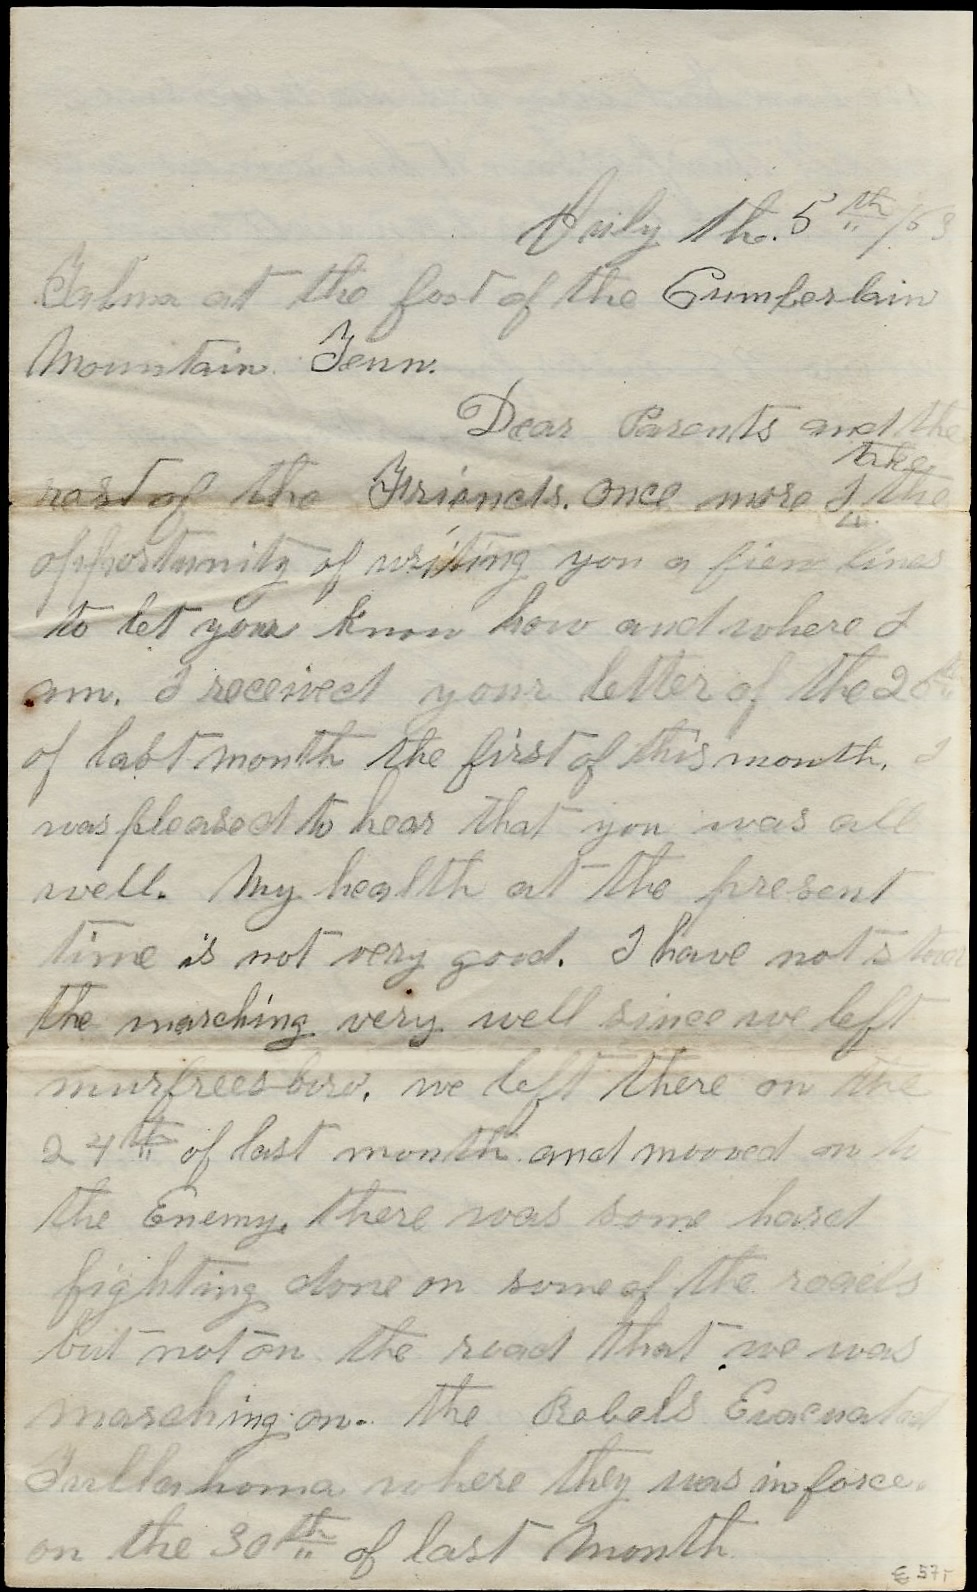 July th. 5th/63
at the foot of the Cumberlain
Mountain. Tenn.
Dear Parents and the
take
rest of the Friends. Once more I the
opportunity of writing you a fiew lines
to let your know how and where I
am. I received your letter of the 20th
of last month the first of this month. I
was pleased to hear that you was all
well. My health at the present
time is not very good. I have not stood
the marching very well since we left
murfreesboro. we left there on the
24th of last month and mooved on to
the Enemy. there was some hard
fighting done on some of the roads
but not on the road that we was
marching on. the Rebels Evacuated
Tullahoma where they was in force.
on the 30th of last Month